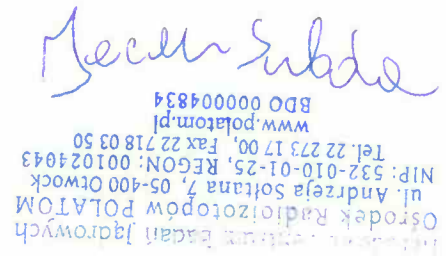 Centrum Badań Jądrowych
Ośrodek Radioizotopów POLATOM
ul. Andrzeja Sołtana 7, 05-400 Otwock
NIP: 532-010-01-25, REGON: 001024043
Tel. 22 273 17 00, Fax 22 718 03 50
www.polatom.pl
BDO 000004834